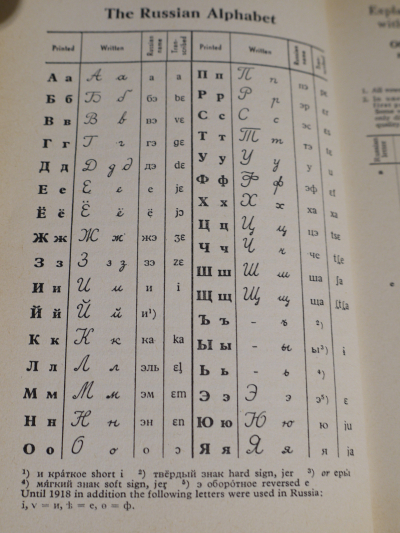 The Russian Alphabet
Printed Written Russian name Transcribed
А а А а а a
Б б Б б бэ bɛ
В в В в вэ vɛ
Г г Г г гэ gɛ
Д д Д д д дэ dɛ
Е е Е е е jɛ
Ё ё Ё ё ё jɔ
Ж ж Ж ж жэ ʒɛ
З з З з з зэ zɛ
И и И и и i
Й й Й й и¹)
К к К к ка ka
Л л Л л эль ɛl̡
М м М м эм ɛm
Н н Н н эн ɛn
О о О о о ɔ
Printed Written Russian name Transcribed
П п П п пэ
Р р Р р эр
С с С с эс
Т т Т т тэ
У у У у у u
Ф ф Ф ф эф ɛf
Х х Х х ха xa
Ц ц Ц ц цэ tsɛ
Ч ч Ч ч че
Ш ш Ш ш ша ʃa
Щ щ Щ щ ща ʃtʃa
Ъ ъ - ъ ²)
Ы ы - ы ы³) i
Ь ь - ь ⁴)
Э э Э э э⁵) ɛ
Ю ю Ю ю ю ju
Я я Я я я ja
¹) и кра́ткое short i ²) твёрдый знак hard sign, jer ³) or еры́
⁴) мя́гкий знак soft sign, jer̡ ⁵) э оборо́тное reversed e
Until 1918 in addition the following letters were used in Russia:
i, v = и, ѣ = е, ѳ = ф.